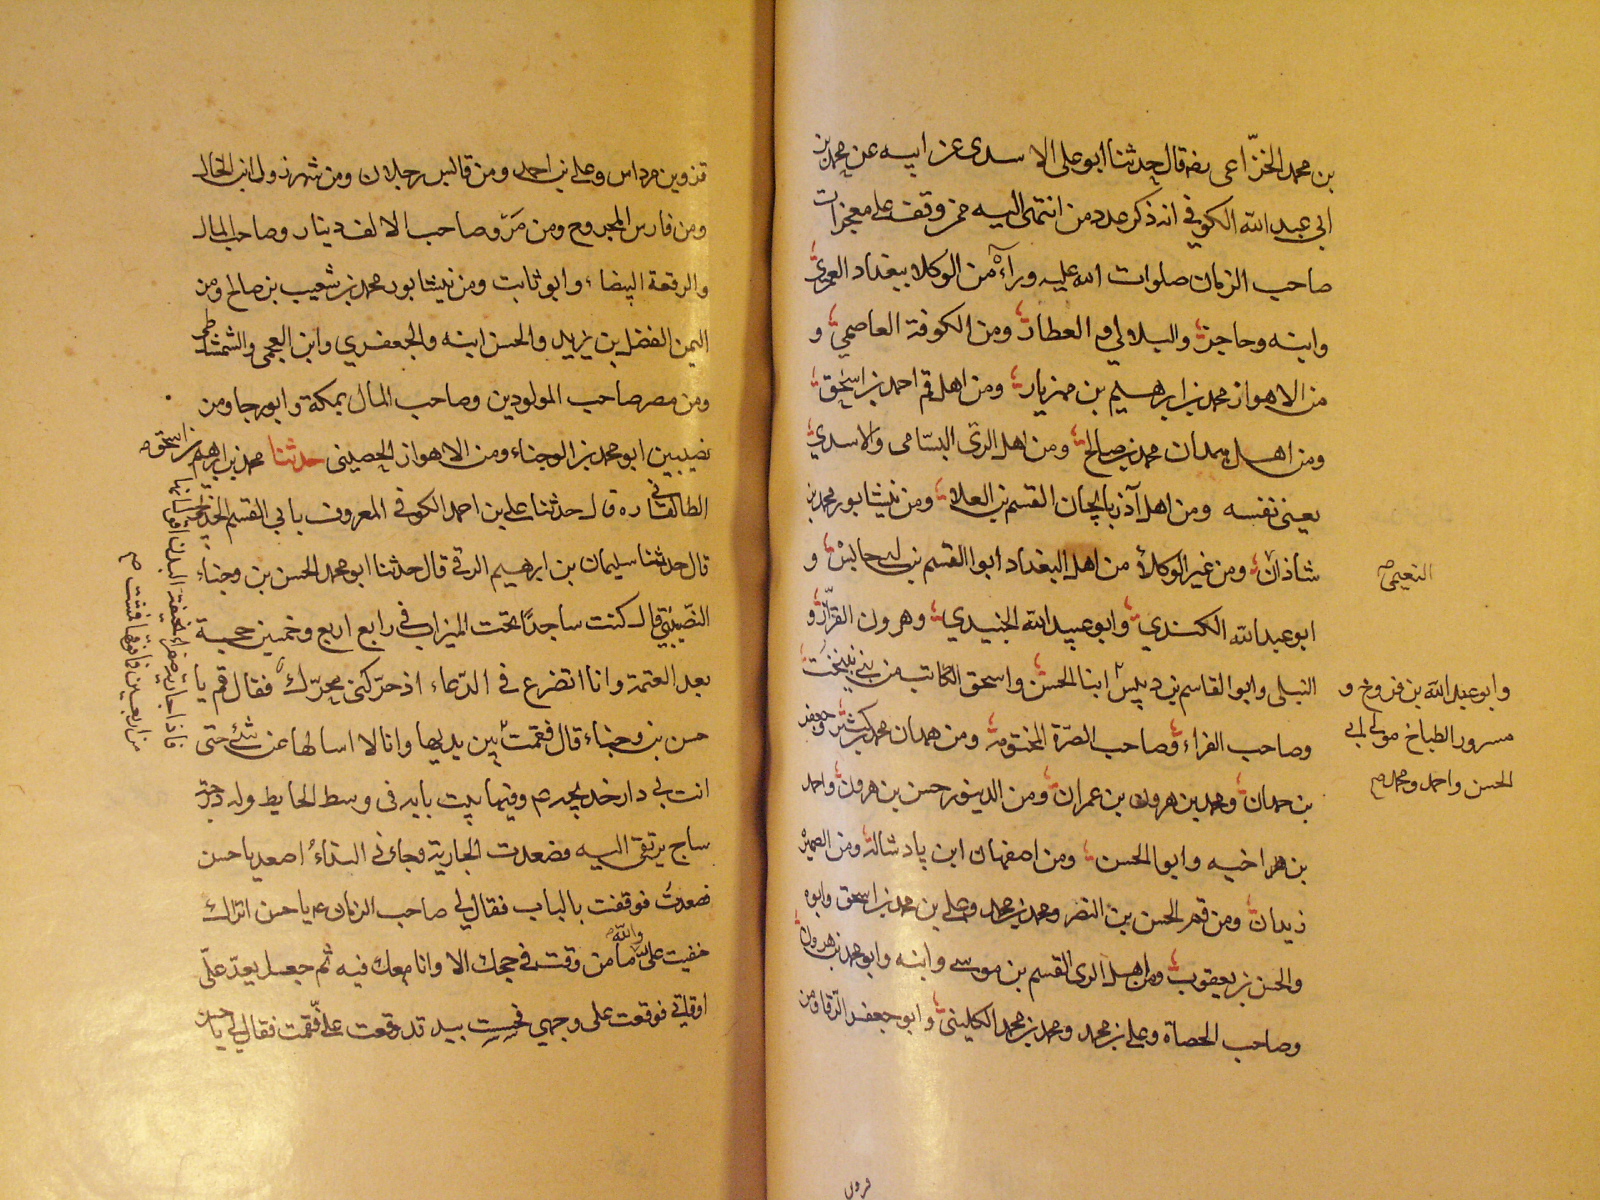 بن محمد الخزاعى رضه قال حدثنا ابو على الاسدى عن ابيه عن محمد بن
ابى عبد الله الكوفي انه ذكر عدد من انتهى اليه ممن وقف على معجزات
صاحب الزمان صلوات الله عليه وراٰه من الوكلا ببغداد العمرى
وابنه وحاجز والبلالي و العطار ومن الكوفة العاصمي و
من الاهواز محمد بن ابرهيم بن مهزيار ومن اهل قم احمد بن اسحق
ومن اهل همدان محمد بن صالح ومن اهل الرى البسّامى والاسدي
يعنى نفسه ومن اهل آذربايجان القسم بن العلا ومن نيشابور محمد بن
شاذان ومن غير الوكلا من اهل البغداد ابو القسم بن ابى حابس و
النعيمى
ابو عبد الله الكندي وابو عبد الله الجنيدي وهرون القزّاز و
النيلى وابو القاسم بن دبيس ابنا الحسن واسحق الكاتب من بنى نيبخت
وابو عبد الله بن فروخ و
مسرور الطباخ مولى ابى
الحسن واحمد ومحمد
وصاحب الفراء وصاحب الصرّة المختومة ومن همدان محمد بن كشمرد وجعفر
بن حمدان ومحمد بن هرون بن عمران ومن الدينور حسن بن هرون واحمد
بن اخيه وابو الحسن ومن اصفهان ابن پادشاله ومن الصيمر
زيدان ومن قم الحسن بن النضر ومحمد بن محمد وعلى بن محمد بن اسحق وابوه
والحسن بن يعقوب ومن اهل الرى القسم بن موسى وابنه وابو محمد بن هرون
وصاحب الحصاة وعلى بن محمد ومحمد بن محمد الكلينى وابو جعفر الرّفا ومن
قزوين مرداس وعلى بن احمد ومن قابس رجلان ومن شهرزول ابن الخال
ومن فارس المجروح ومن مَرو صاحب الالف دينار وصاحب المال
والرقعة البيضاء وابو ثابت ومن نيشابور محمد بن شعيب بن صالح ومن
اليمن الفضل بن يزيد والحسن ابنه والجعفري وابن العجمى والشمشاطى
ومن مصر صاحب المولودين وصاحب المال بمكة وابو رجا ومن
نصيبين ابو محمد بن الوجناء ومن الاهواز الحصينى حدثنا محمد بن ابرهيم بن اسحق
الطالقانى ره قال حدثنا على بن احمد الكوفي المعروف بابى القسم الخديجى
قال حدثنا سليمان بن ابرهيم الرقى قال حدثنا ابو محمد الحسن بن وجناء
النصيبي قال كنت ساجدًا تحت الميزاب في رابع اربع وخمسين حجة
بعد العتمة وانا اتضرع في الدّعاء اذ حرّكنى محرّك فقال قم يا
حسن بن وجناء قال فقمت بين يديها وانا لا اسالها عن شئ حتى
فاذا جارية صفراء نحيفة البدن اقول انها
من ابناء اربعين فما فوقها فمشت
اتت بى دار خديجه ع وفيها بيت بابه في وسط الحايط وله درج
ساج يرتقى اليه فصعدت الجارية وجاءنى النداءُ اصعد يا حسن
فصعدتُ فوقفت بالباب فقال لي صاحب الزمان ع يا حسن اتراك
خفيت علىّ والله ما من وقت في حجك الا وانا معك فيه ثم جعل يعدّ علىّ
اوقاتى فوقعت على وجهي فحست بيد قد وقعت علىّ فقمت فقال لي يا حسن